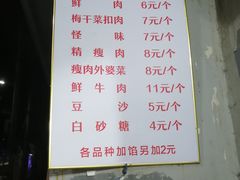 鲜肉 6元/个
梅干菜扣肉 7元/个
怪味 7元/个
精瘦肉 8元/个
瘦肉外婆菜 8元/个
鲜牛肉 11元/个
豆沙 5元/个
白砂糖 4元/个
各品种加馅另加2元